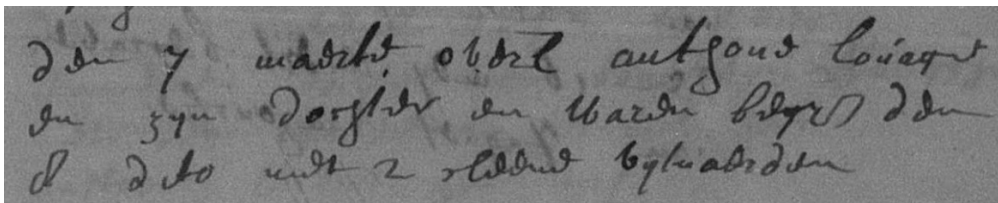 den 7 maerte obert anthone Louage
en zyn dochter en waren begr den
8 dito met 2 cleene uytvaerden